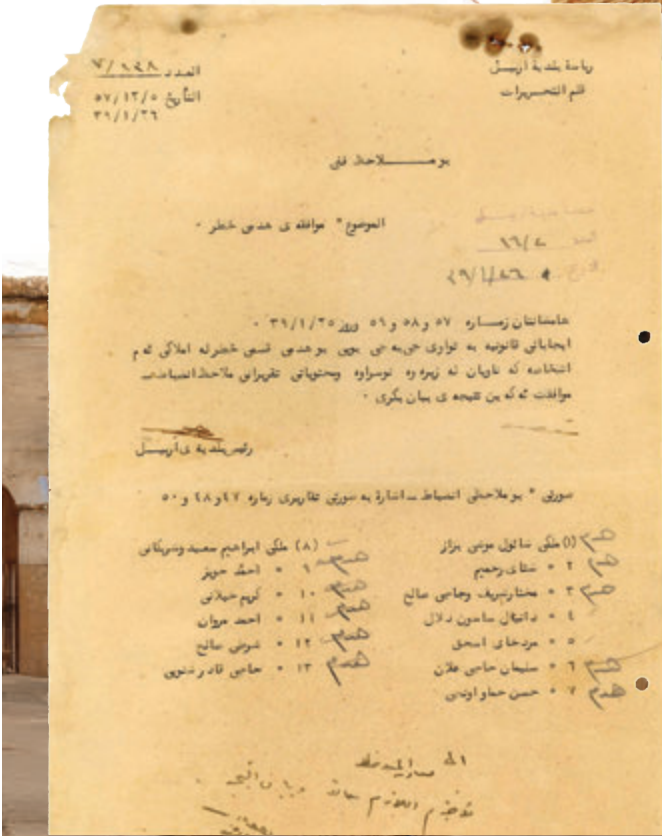 رياسة بلدية اربيل
قلم التحريرات
العدد ٧/١٣٨
التأريخ ٥٧/١٢/٥
٣٩/١/٢٦
بو ملاحظ فنى
الموضوع * موافقه ى هدمى خطر ٠
١٦/٤
٣٩/١/٢٦
ژماره ٥٧ و ٥٨ و ٥٩ روژ ٣٩/١/٢٥ ٠
ايجاباتى قانونيه به تواوى جى به جى بوبى بو هدمى قسمى خطر له املاكى ئه م
اشخاصه كه ناويان له ژيره وه نوسراوه ومحتوياتى تقريرانى ملاحظ انضباط
موافقت ئه كه ين نتيجه ى بيان بكرى ٠
رئيس بلديه ى أربيل
صورتى * بو ملاحظى انضباط اشارة به صورتى تقاريرى ژماره ٤٧ و ٤٨ و ٥٠
(١) ملكى شائول موشى بزاز هدم
٢ * رحيم هدم
٣ * مختار شريف وحاجى صالح هدم
٤ * دانيال ساسون دلال
٥ * مردخاى اسحق
٦ * سليمان حاجى علان هدم
٧ * حسن حماو اونجى هدم
(٨) ملكى ابراهيم سعيد وشريكانى
٩ * احمد حويز هدم
١٠ * كريم هدم
١١ * احمد مروان هدم
١٢ * شوشى صالح هدم
١٣ * حاجى قادر هدم
الى
اللازم